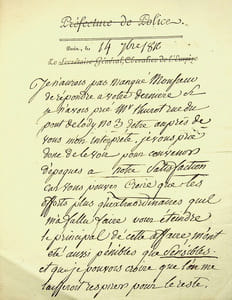 Préfecture de Police.
Paris, le 14 7bre 181
Le Secrétaire Général, Chevalier de l'Empire
Je n'aurois pas manqué Monsieur
de répondre a votre dernière si
je n'avois prié Mr hurot rue du
pont de lody no 3 detre auprès de
vous mon interprète. je vous prie
donc de le voir pour convenir
d'epoques a notre Satisfaction
car vous pouvez Croire que les
efforts plus qu'extraordinaires quil
m'a fallu faire pour eteindre
le principal de cette affaire, m'ont
été aussi pénibles que Sensibles.
et que je pouvois croire que l'on me
laisseroit respirer pour le reste.